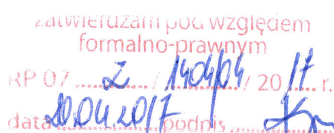 zatwierdzam pod względem
formalno-prawnym
RP 07 ..... 2 ..... / 1404/04 / 20 17 r.
data 20.04.2017 podpis